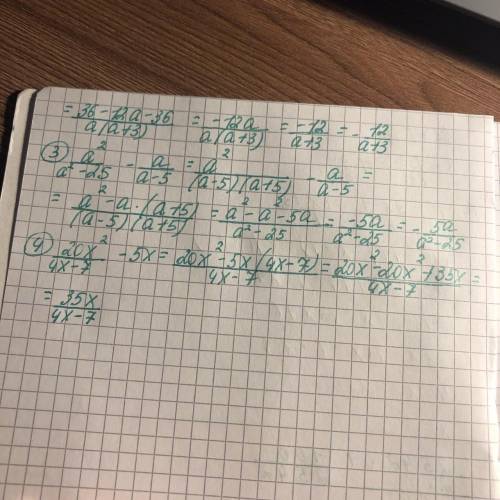 = (36-12a-36)/(a(a+3)) = (-12a)/(a(a+3)) = (-12)/(a+3) = -12/(a+3)
③ a²/(a²-25) - a/(a-5) = a²/((a-5)(a+5)) - a/(a-5) =
= (a²-a·(a+5))/((a-5)(a+5)) = (a²-a²-5a)/(a²-25) = (-5a)/(a²-25) = -5a/(a²-25)
④ 20x²/(4x-7) - 5x = (20x²-5x(4x-7))/(4x-7) = (20x²-20x²+35x)/(4x-7) =
= 35x/(4x-7)